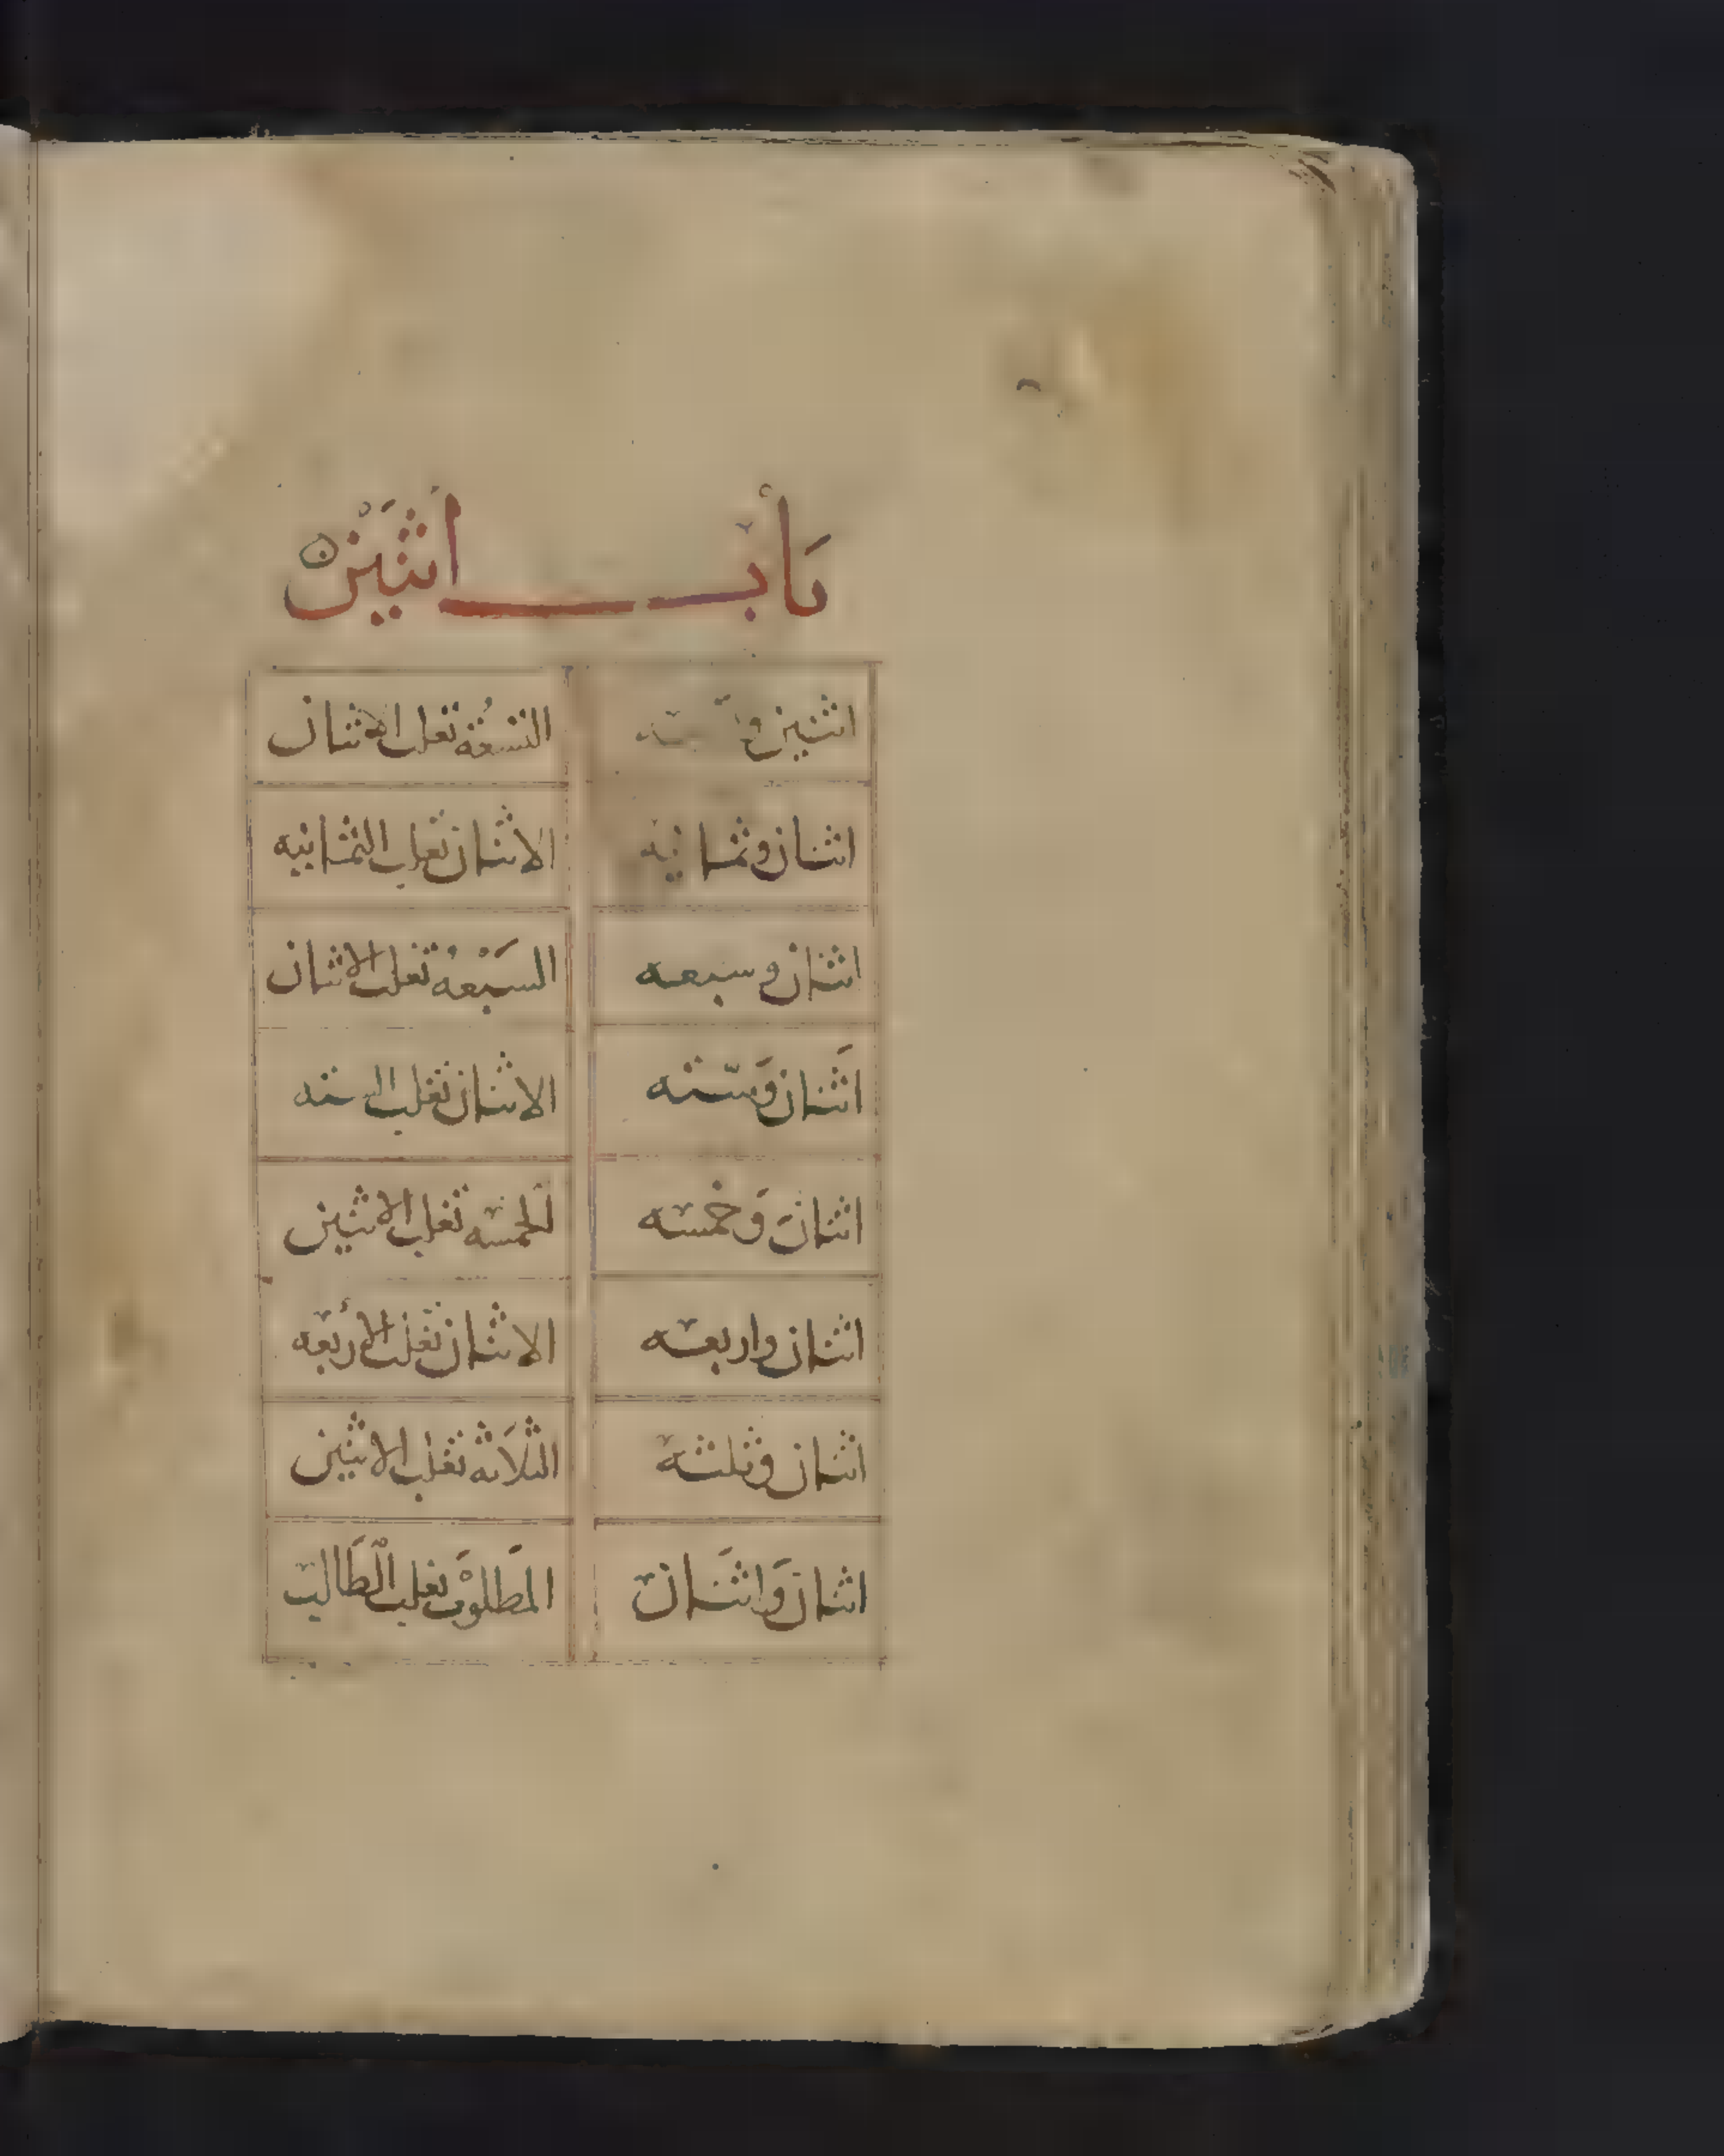 بَابْ اثْنَيْنْ
اثنين و التسعة تغلب الاثنان
اثنان وثمانيه الاثنان تغلب الثمانيه
اثنان وسبعه السَبْعة تغلب الاثنان
اثنان وَستته الاثنان تغلب الستته
اثنان وَخمسه الخمسه تغلب الاثنين
اثنان واربعه الاثنان تغلب الأربعه
اثنان وثلثه الثلاثه تغلب الاثنين
اثنان وَاثنَان المَطلوبْ يغلب الطَالب